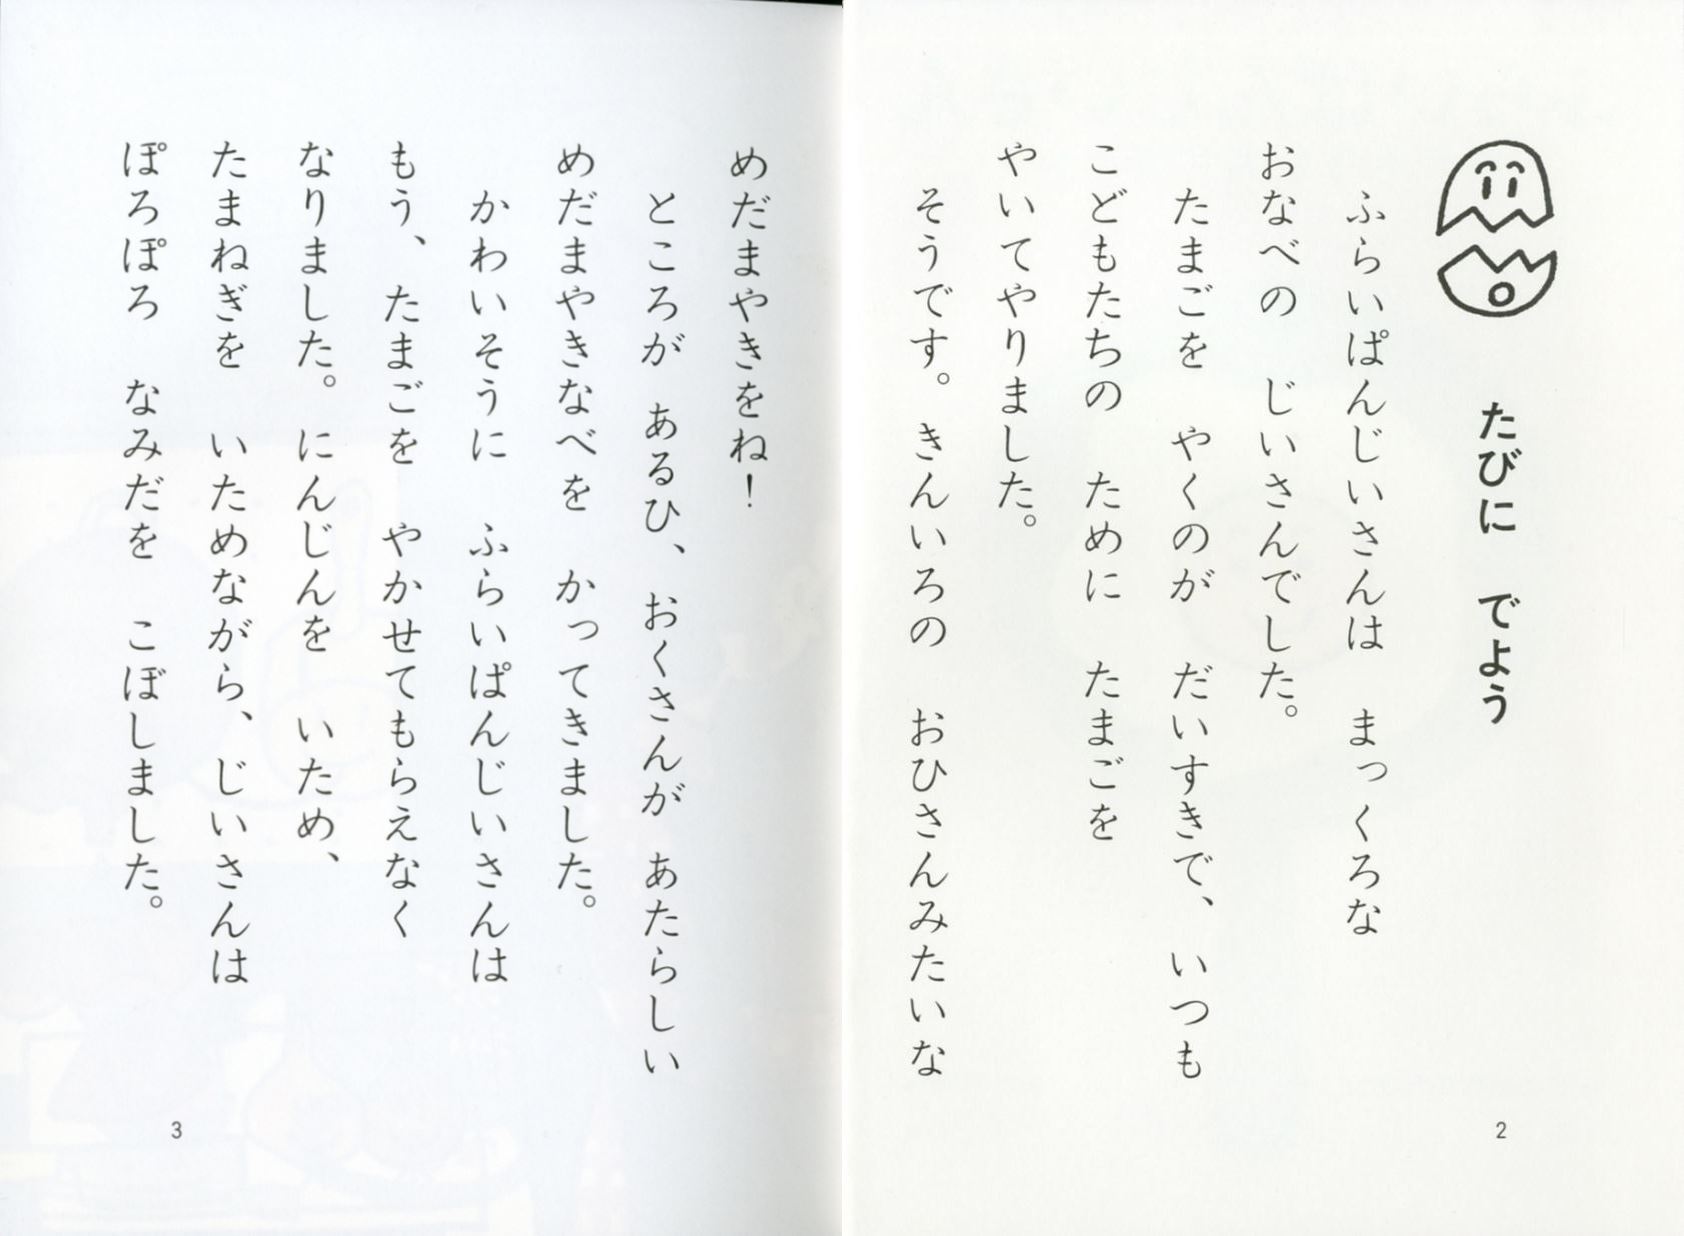 たびに　でよう
ふらいぱんじいさんは　まっくろな
おなべの　じいさんでした。
たまごを　やくのが　だいすきで、いつも
こどもたちの　ために　たまごを
やいてやりました。
そうです。きんいろの　おひさんみたいな
2
めだまやきをね！
ところが　あるひ、おくさんが　あたらしい
めだまやきなべを　かってきました。
かわいそうに　ふらいぱんじいさんは
もう、たまごを　やかせてもらえなく
なりました。にんじんを　いため、
たまねぎを　いためながら、じいさんは
ぽろぽろ　なみだを　こぼしました。
3